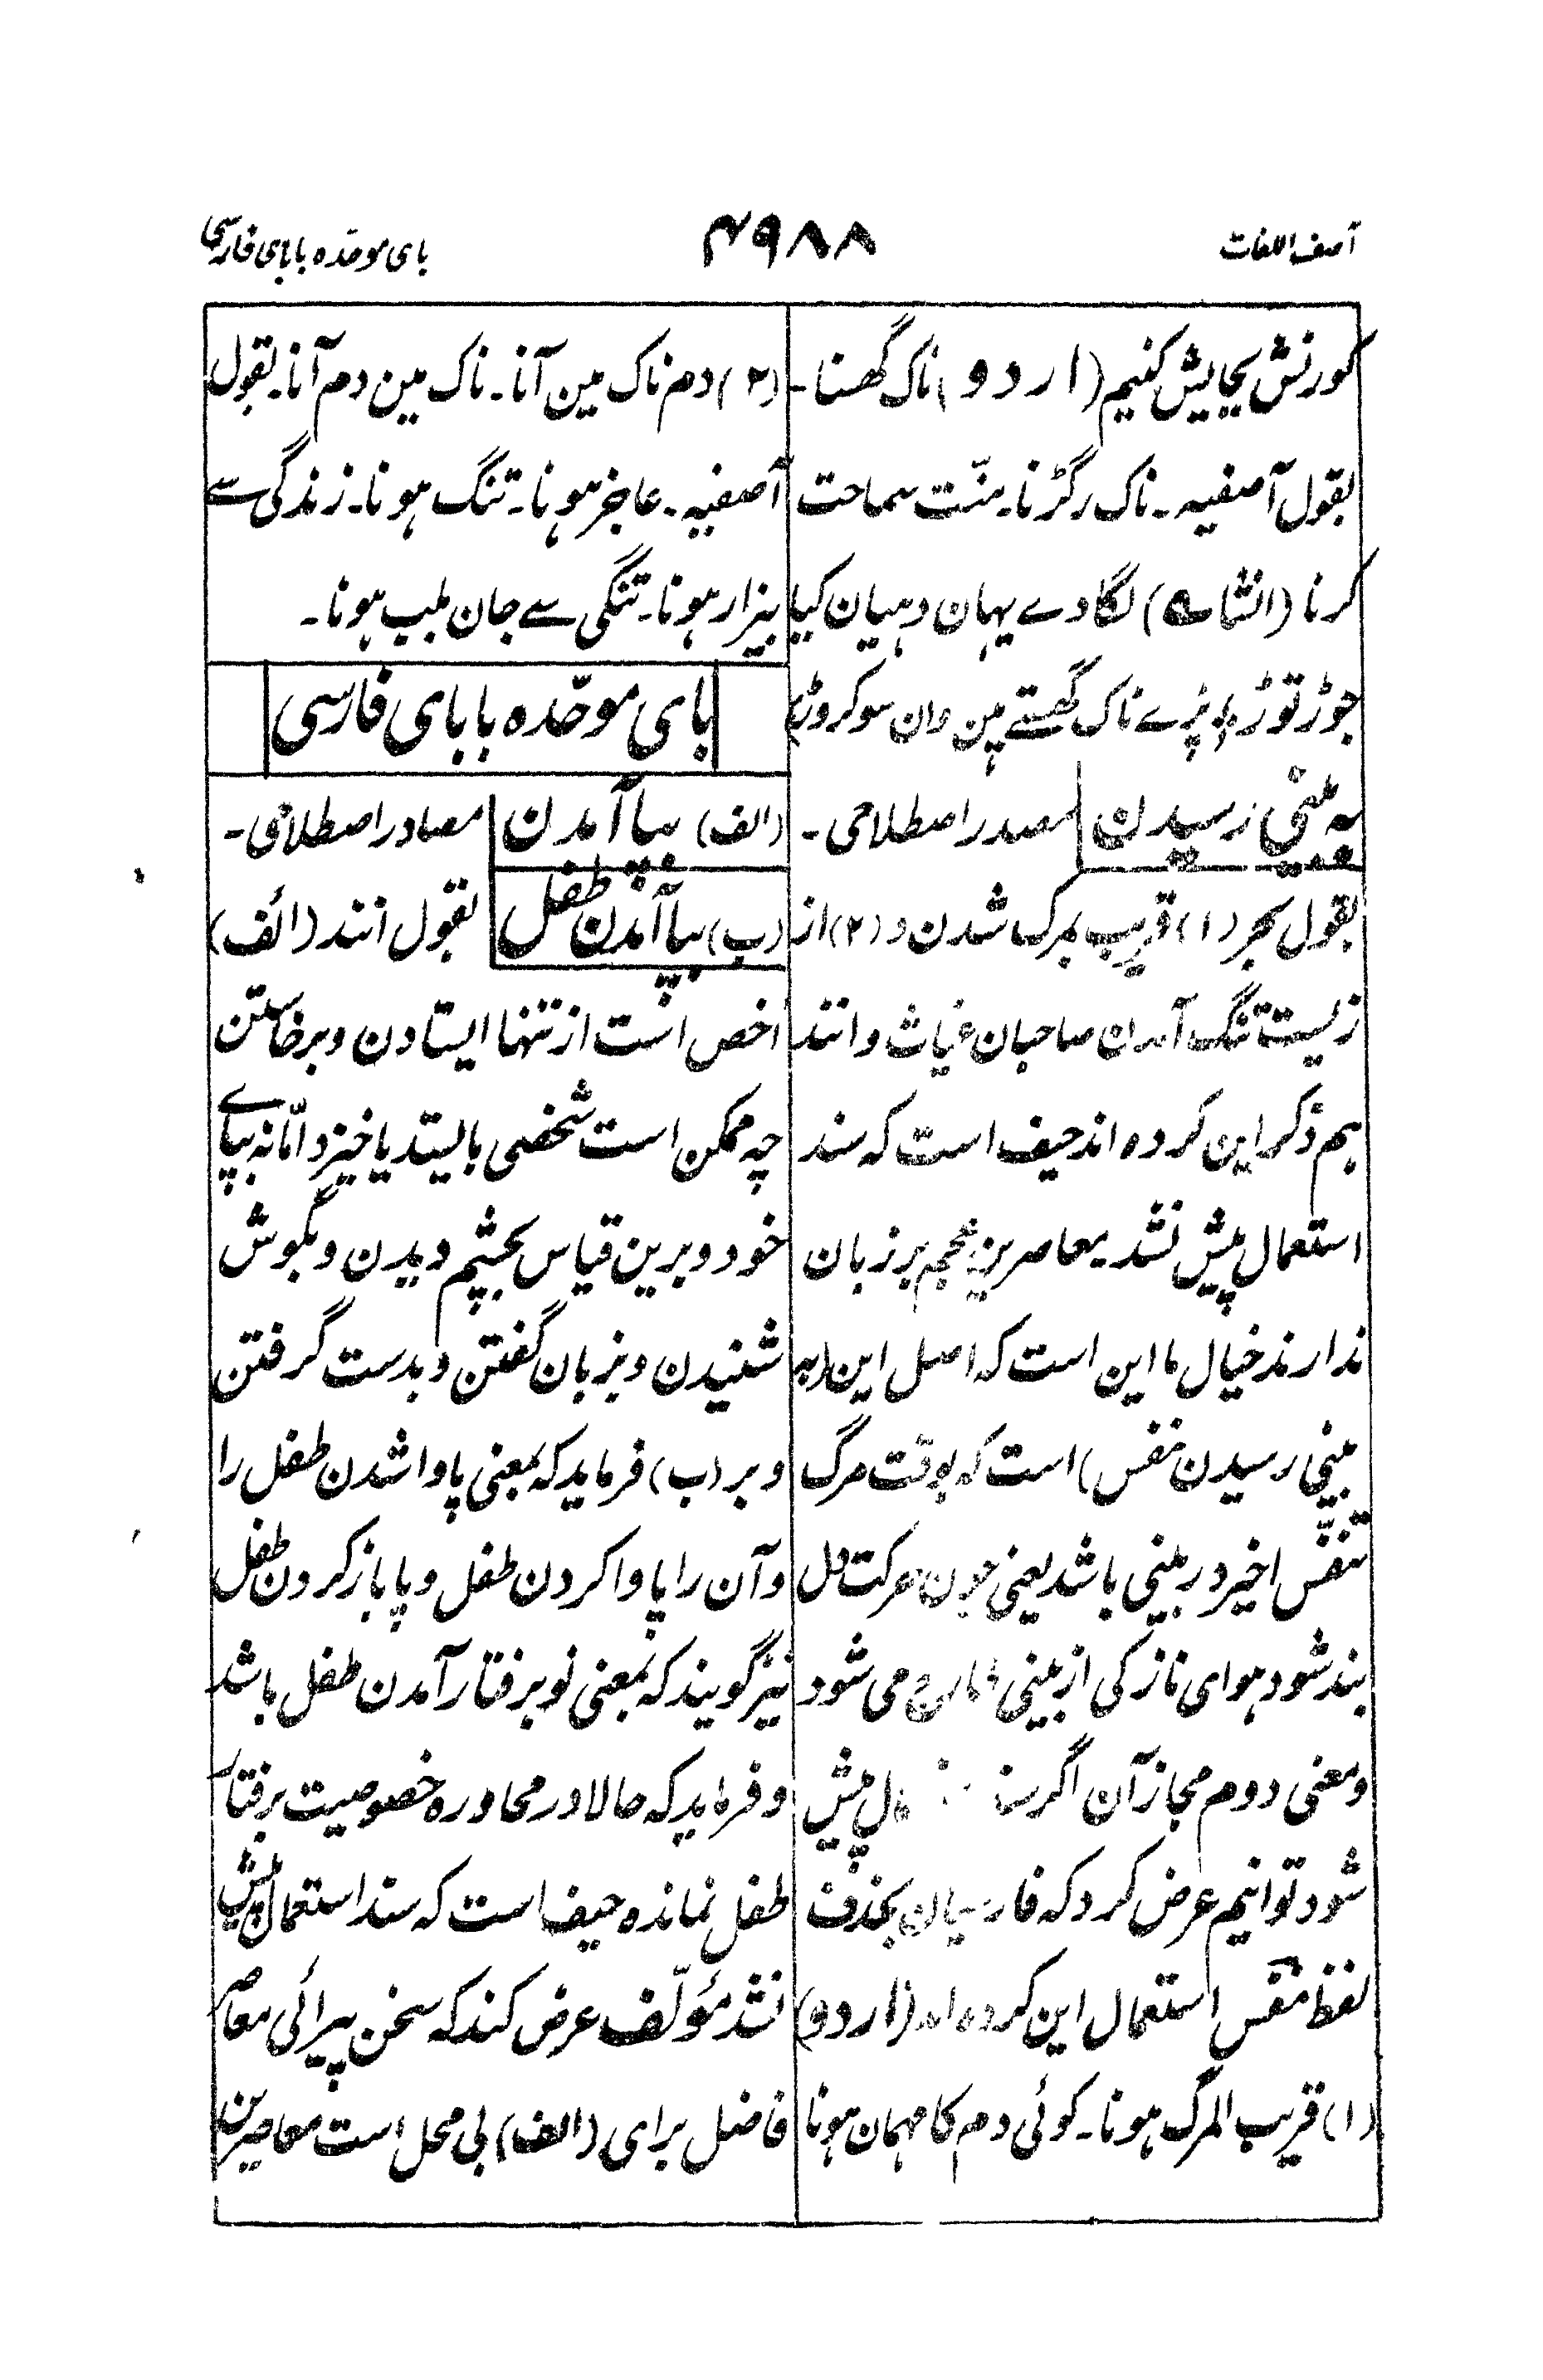 آصف اللغات
۴۹۸۸
بای موحّده با بای فارسی
کورنش بجایش کنیم (اردو) ناک گھسنا۔
بقول آصفیہ۔ ناک رگڑنا۔ منّت سماحت
کرنا (انشا ؎) لگا دے یہان دھیان کیا
جوڑ توڑ پڑے ناک گھستے ہین وان سو کروڑ
بہ بینی رسیدن مصدر اصطلاحی۔
بقول بحر (۱) قریب بمرگ شدن و (۲) از
زیست تنگ آمدن صاحبان غیاث و انند
ہم ذکر این کردہ اند حیف است کہ سند
استعمال پیش نشد معاصرین عجم بر زبان
ندارند خیال ما این است کہ اصل این (بہ
بینی رسیدن نفس) است کہ بوقت مرگ
تنفّس اخیر در بینی باشد یعنی چون حرکت دل
بند شود ہوای نازکی از بینی می شود
و معنی دوم مجاز آن اگر پیش
شود توانیم عرض کرد کہ فارسیان بحذف
لفظ نفس استعمال این کردہ اند (اردو)
(۱) قریب المرگ ہونا۔ کوئی دم کا مہمان ہونا
(۲) دم ناک مین آنا۔ ناک مین دم آنا۔ بقول
آصفیہ۔ عاجز ہونا۔ تنگ ہونا۔ زندگی سے
بیزار ہونا۔ تنگی سے جان بلب ہونا۔
بای موحّدہ با بای فارسی
(الف) بپا آمدن مصادر اصطلاحی۔
(ب) بپا آمدن طفل بقول انند (الف)
اخص است از تنہا ایستادن و برخاستن
چہ ممکن است شخصی بایستد یا خیزد امّا نہ بپاے
خود و برین قیاس بچشم دیدن و بگوش
شنیدن و بزبان گفتن و بدست گرفتن
و بر (ب) فرماید کہ بمعنی پا وا شدن طفل را
و آن را پا وا کردن طفل و پا باز کردن طفل
نیز گویند کہ بمعنی نو برفتار آمدن طفل باشد
و فرماید کہ حالا در محاورہ خصوصیت برفتار
طفل نماندہ حیف است کہ سند استعمال پیش
نشد مؤلّف عرض کند کہ سخن پیرائی معاصر
فاضل برای (الف) بی محل است معاصرین